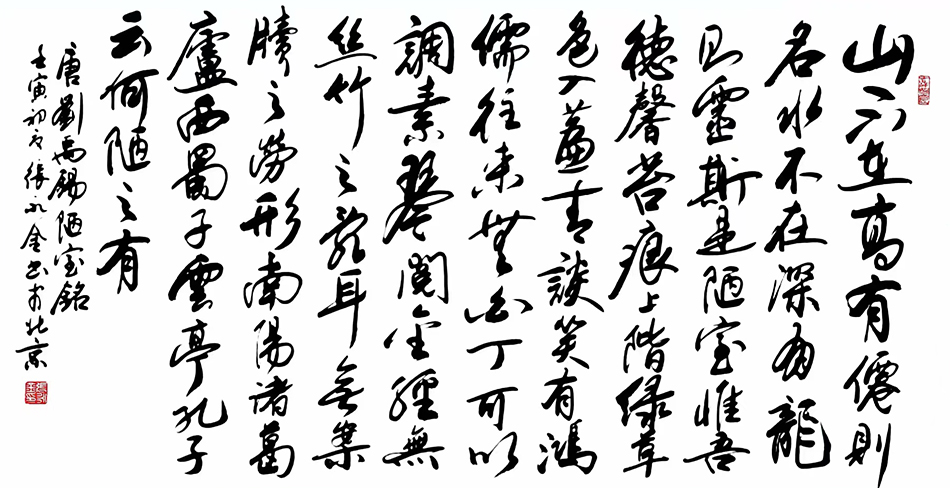 山不在高有僊則
名水不在深有龍
则靈斯是陋室惟吾
德馨苔痕上階緑草
色入簾青談笑有鴻
儒往来無白丁可以
調素琴閱金經無
丝竹之亂耳無案
牘之勞形南陽諸葛
廬西蜀子雲亭孔子
云何陋之有
唐劉禹錫陋室銘
壬寅初張永金书於北京